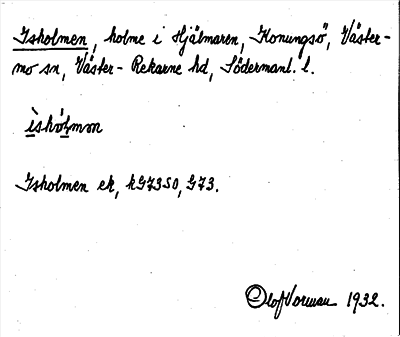 Isholmen, holme i Hjälmaren, Konungsö, Väster-
mo sn, Väster-Rekarne hd, Södermanl. l.
ìshóɫmɷn
Isholmen ek, kG73SO, G73.
Olof Vorman 1932.